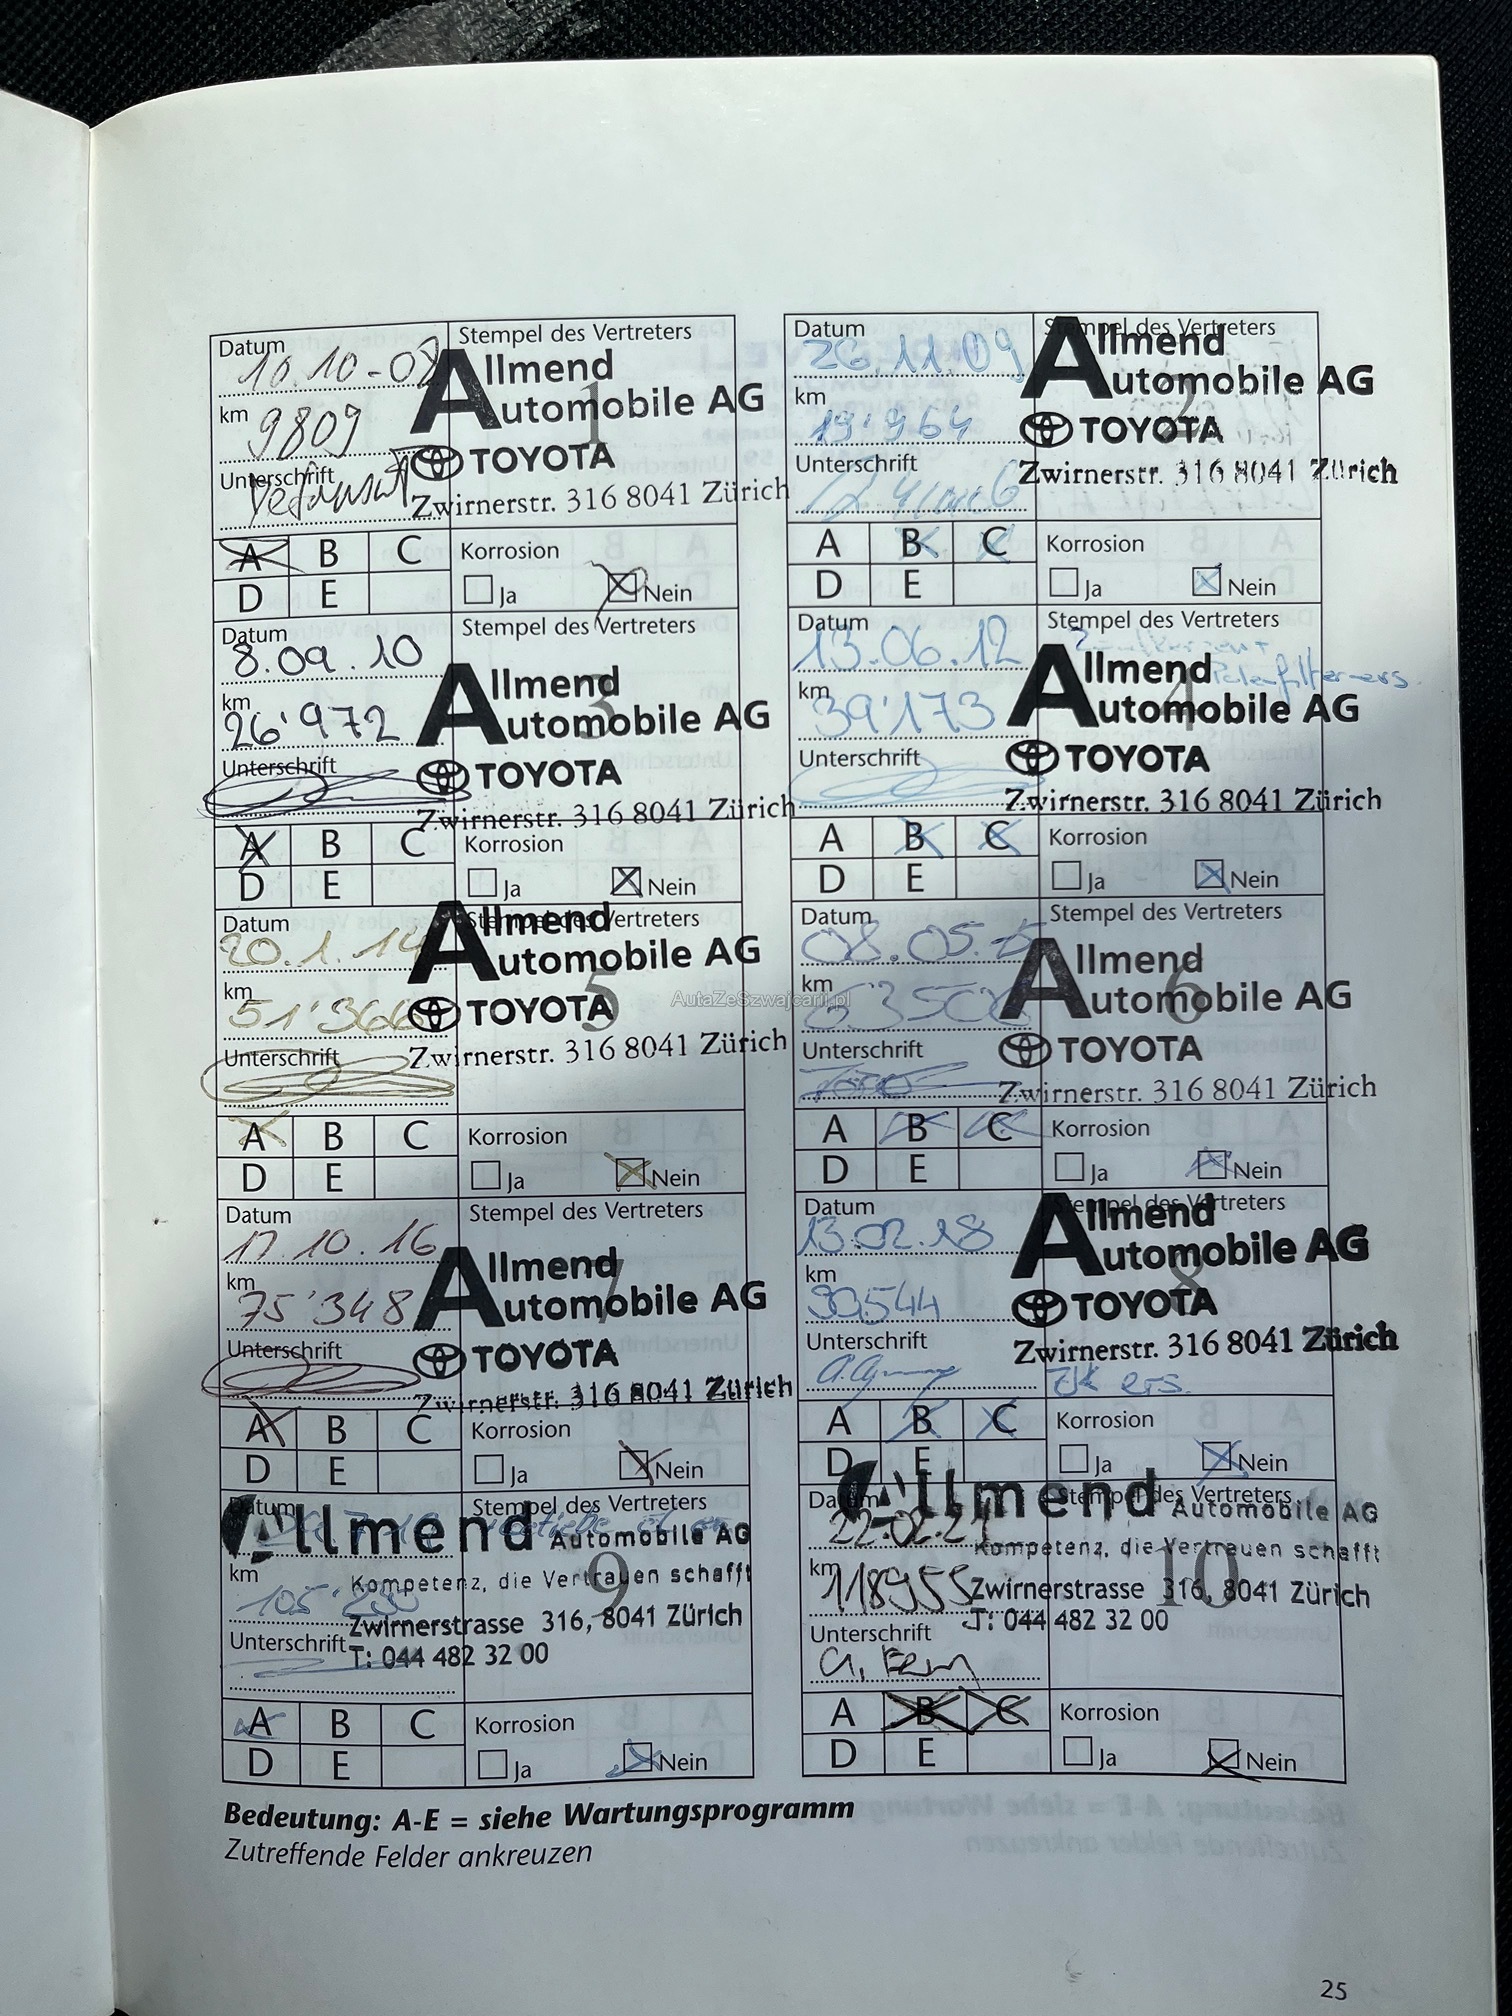 Datum
10.10-08
km
9809
Unterschrift
Stempel des Vertreters
Allmend
Automobile AG
1
TOYOTA
Zwirnerstr. 316 8041 Zürich
A B C
D E
Korrosion
Ja Nein
Datum
26.11.09
km
19'964
Unterschrift
Stempel des Vertreters
Allmend
Automobile AG
2
TOYOTA
Zwirnerstr. 316 8041 Zürich
A B C
D E
Korrosion
Ja Nein
Datum
8.09.10
km
26'972
Unterschrift
Stempel des Vertreters
Allmend
Automobile AG
3
TOYOTA
Zwirnerstr. 316 8041 Zürich
A B C
D E
Korrosion
Ja Nein
Datum
13.06.12
km
39'173
Unterschrift
Stempel des Vertreters
Allmend
Automobile AG
4
TOYOTA
Zwirnerstr. 316 8041 Zürich
A B C
D E
Korrosion
Ja Nein
Datum
20.1.14
km
51'366
Unterschrift
Stempel des Vertreters
Allmend
Automobile AG
AutaZeSzwajcarii.pl
5
TOYOTA
Zwirnerstr. 316 8041 Zürich
A B C
D E
Korrosion
Ja Nein
Datum
km
Unterschrift
Stempel des Vertreters
Allmend
Automobile AG
6
TOYOTA
Zwirnerstr. 316 8041 Zürich
A B C
D E
Korrosion
Ja Nein
Datum
17.10.16
km
75'348
Unterschrift
Stempel des Vertreters
Allmend
Automobile AG
7
TOYOTA
Zwirnerstr. 316 8041 Zürich
A B C
D E
Korrosion
Ja Nein
Datum
13.02.18
km
Unterschrift
Stempel des Vertreters
Allmend
Automobile AG
8
TOYOTA
Zwirnerstr. 316 8041 Zürich
ers.
A B C
D E
Korrosion
Ja Nein
Datum
km
105'230
Unterschrift
Stempel des Vertreters
Allmend Automobile AG
9
Kompetenz, die Vertrauen schafft
Zwirnerstrasse 316, 8041 Zürich
T: 044 482 32 00
A B C
D E
Korrosion
Ja Nein
Datum
22.02.21
km
118955
Unterschrift
Stempel des Vertreters
Allmend Automobile AG
Kompetenz, die Vertrauen schafft
10
Zwirnerstrasse 316, 8041 Zürich
T: 044 482 32 00
A B C
D E
Korrosion
Ja Nein
Bedeutung: A-E = siehe Wartungsprogramm
Zutreffende Felder ankreuzen
25